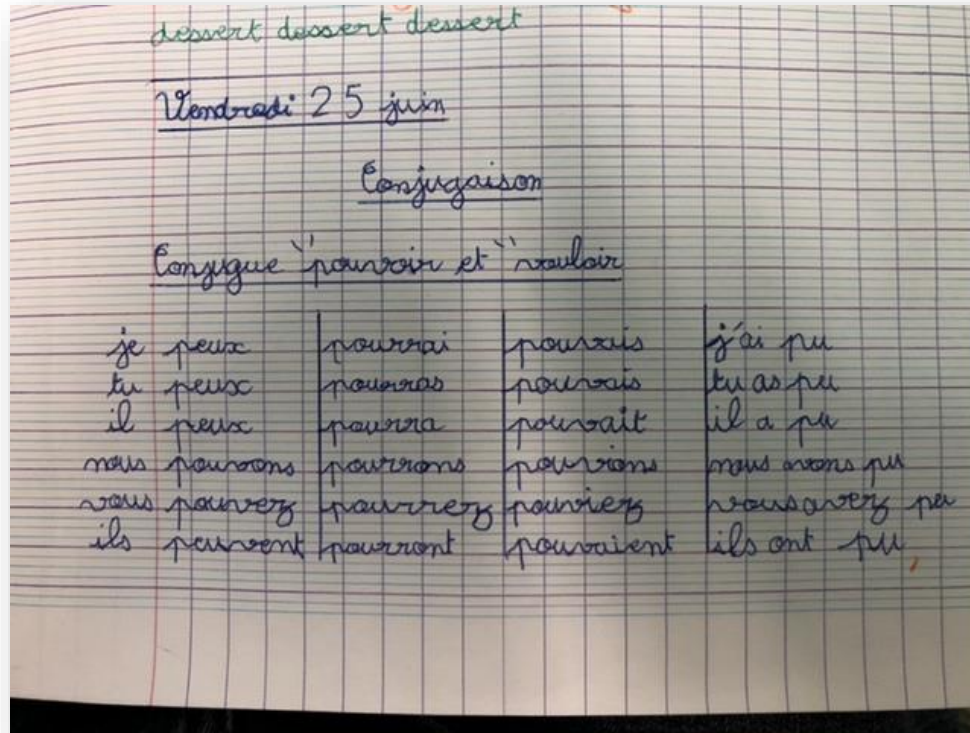 dessert dessert dessert
Vendredi 25 juin
Conjugaison
Conjugue "pouvoir et "vouloir
je peux pourrai pouvais j'ai pu
tu peux pourras pouvais tu as pu
il peux pourra pouvait il a pu
nous pouvons pourrons pouvions nous avons pu
vous pouvez pourrez pouviez vous avez pu
ils peuvent pourront pouvaient ils ont pu